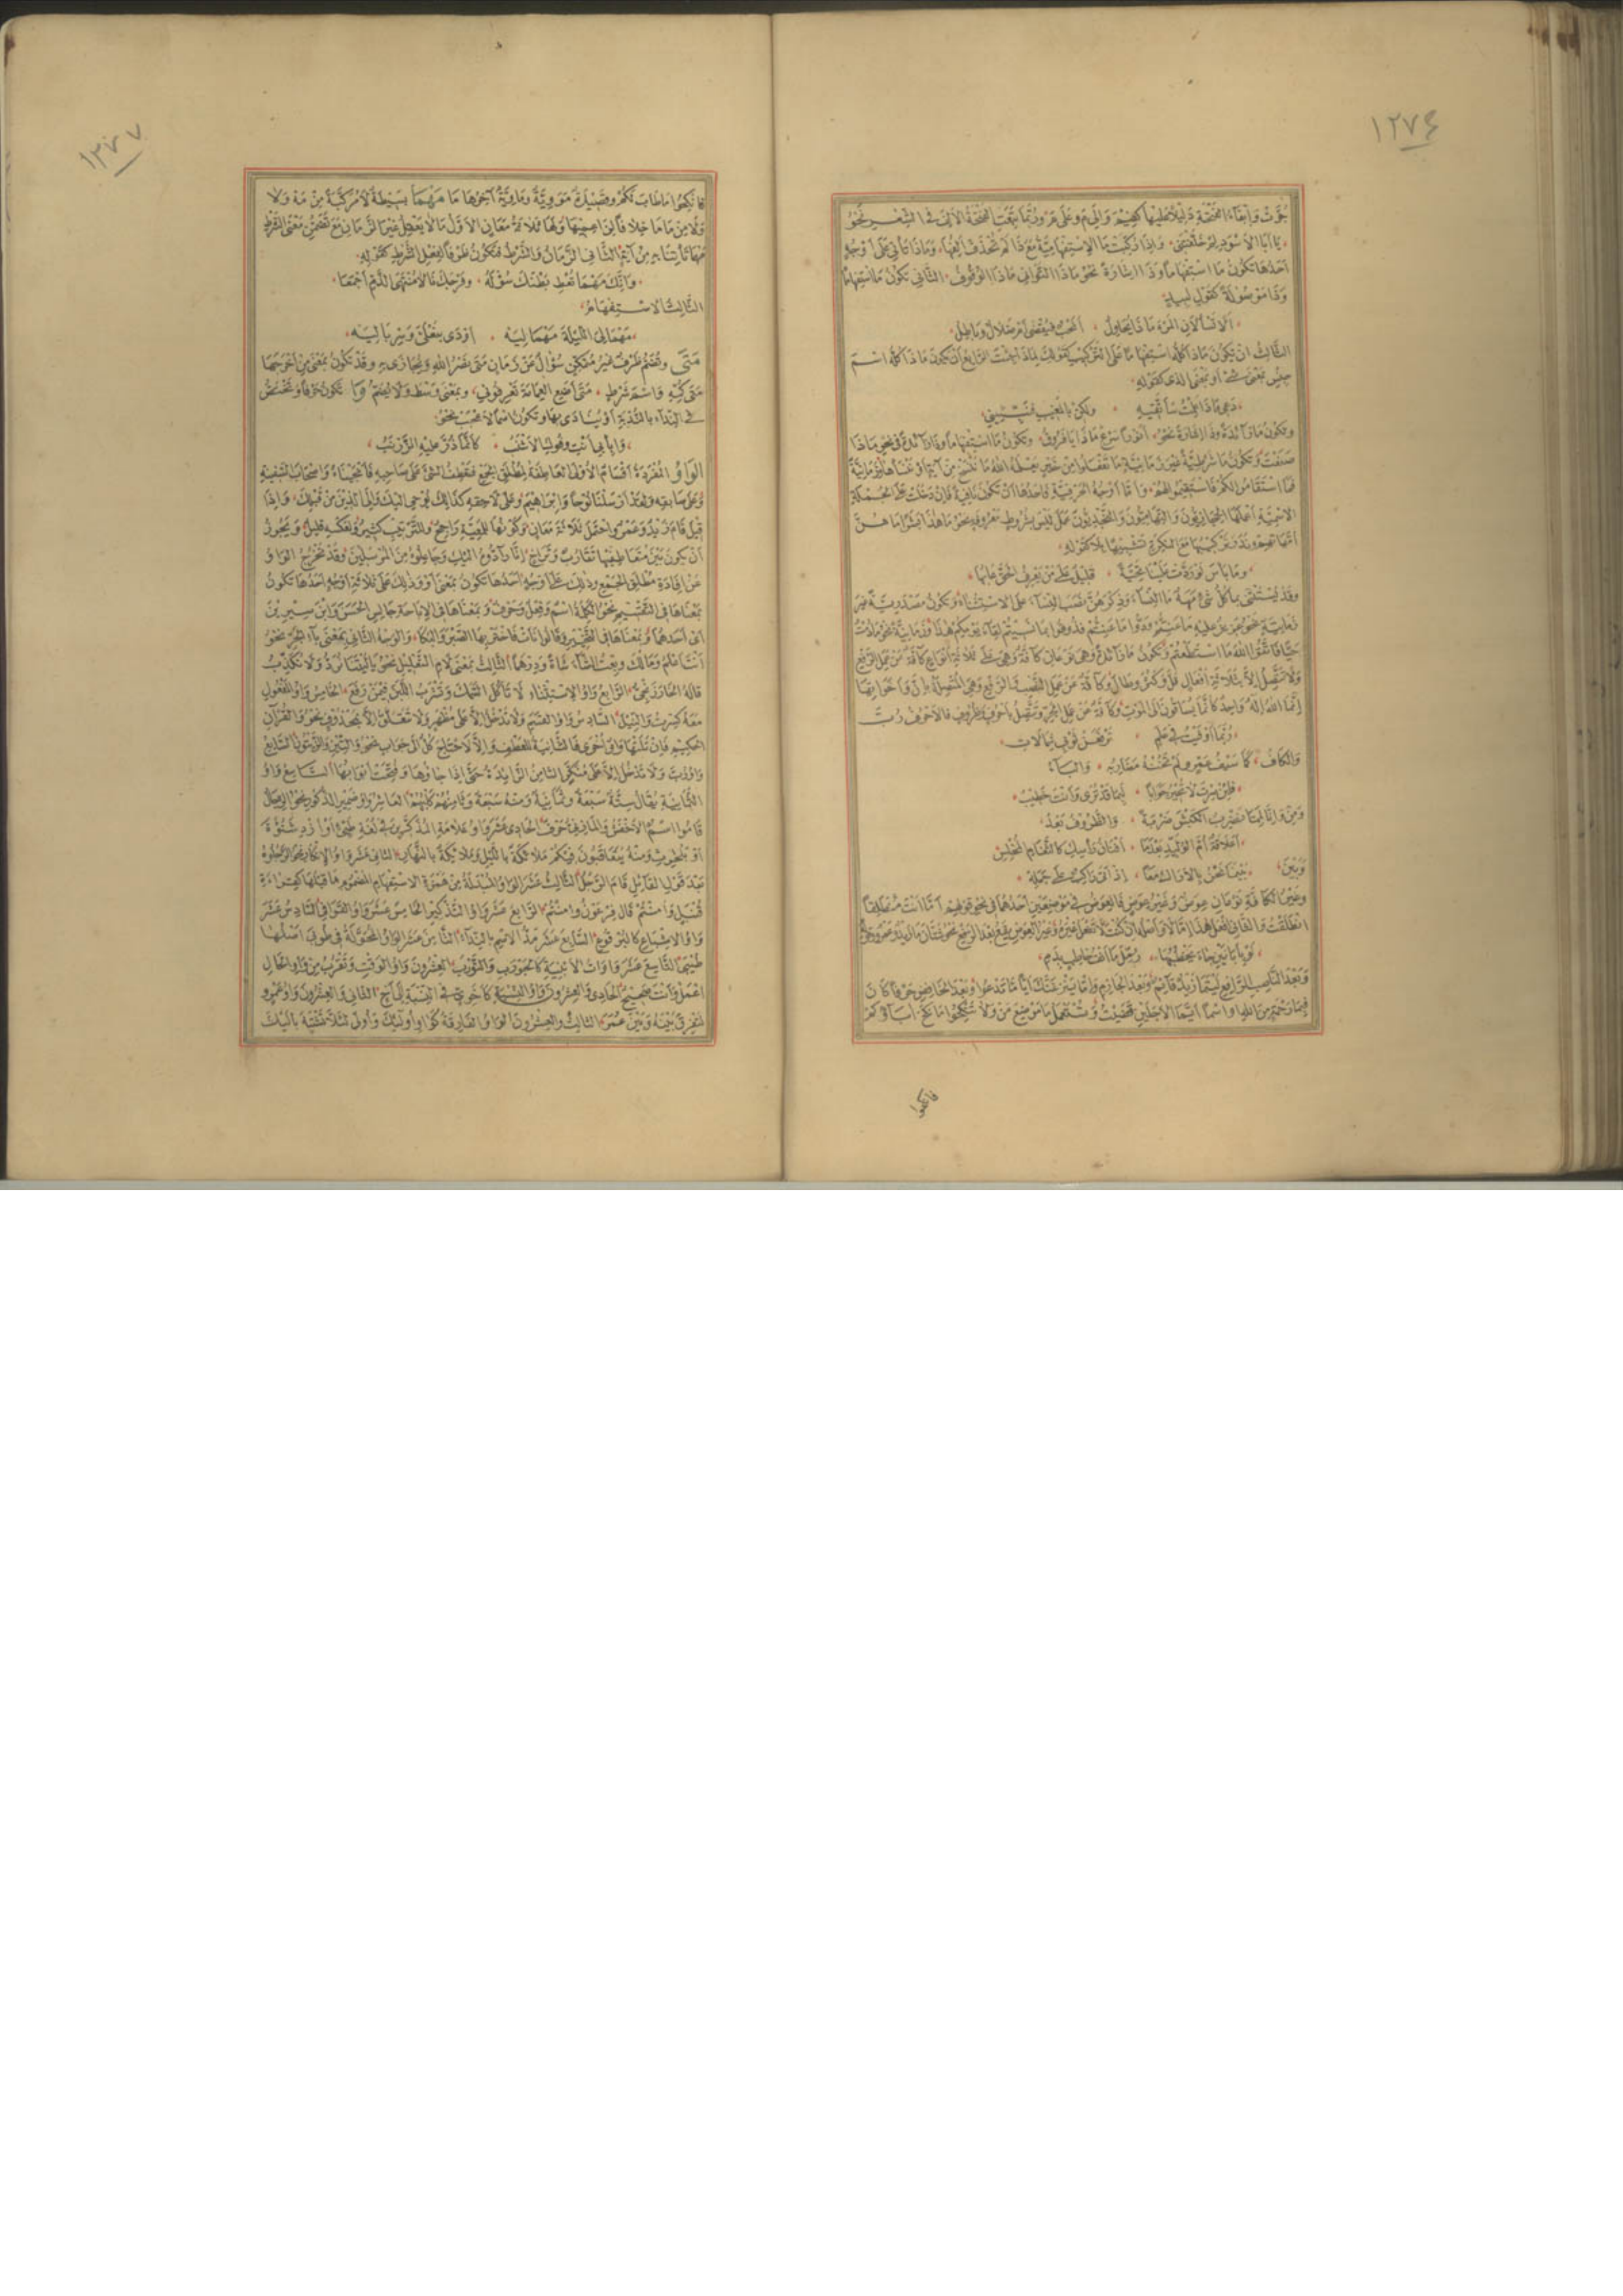 ١٢٧٦
جُرَّتْ وَإِبْقَاءُ الفَتْحَةِ دَلِيلًا عَلَيْهَا كَفِيمَ وَإِلَامَ وَعَلَامَ وَرُبَّمَا تَبِعَتِ الفَتْحَةُ الأَلِفَ فِي الشِّعْرِ نَحْوُ
يَا أَبَا الأَسْوَدِ لِمَ خَلَّفْتَنِي وَإِذَا رُكِّبَتْ مَا الِاسْتِفْهَامِيَّةُ مَعَ ذَا لَمْ تُحْذَفْ أَلِفُهَا وَمَاذَا تَأْتِي عَلَى أَوْجُهٍ
أَحَدُهَا تَكُونُ مَا اسْتِفْهَامًا وَذَا إِشَارَةً نَحْوُ مَاذَا التَّوَانِي مَاذَا الوُقُوفُ الثَّانِي تَكُونُ مَا اسْتِفْهَامًا
وَذَا مَوْصُولَةً كَقَوْلِ لَبِيدٍ
أَلَا تَسْأَلَانِ المَرْءَ مَاذَا يُحَاوِلُ أَنَحْبٌ فَيُقْضَى أَمْ ضَلَالٌ وَبَاطِلُ
الثَّالِثُ أَنْ يَكُونَ مَاذَا كُلُّهُ اسْتِفْهَامًا عَلَى التَّرْكِيبِ كَقَوْلِكَ لِمَاذَا جِئْتَ الرَّابِعُ أَنْ يَكُونَ مَاذَا كُلُّهُ اسْمَ
جِنْسٍ بِمَعْنَى شَيْءٍ أَوْ بِمَعْنَى الَّذِي كَقَوْلِهِ
دَعِي مَاذَا عَلِمْتُ سَأَتَّقِيهِ وَلَكِنْ بِالمُغَيَّبِ نَبِّئِينِي
وَتَكُونُ مَا زَائِدَةً وَذَا إِشَارَةً نَحْوُ أَنَوْرًا سَرْعَ مَاذَا يَا فَرُوقُ وَتَكُونُ مَا اسْتِفْهَامًا وَذَا زَائِدَةً فِي نَحْوِ مَاذَا
صَنَعْتَ وَتَكُونُ مَا شَرْطِيَّةً غَيْرَ زَمَانِيَّةٍ مَا تَفْعَلُوا مِنْ خَيْرٍ يَعْلَمْهُ اللهُ مَا نَنْسَخْ مِنْ آيَةٍ أَوْ نَنْسَأْهَا أَوْ زَمَانِيَّةً
فَمَا اسْتَقَامُوا لَكُمْ فَاسْتَقِيمُوا لَهُمْ وَأَمَّا أَوْجُهُ الحَرْفِيَّةِ فَأَحَدُهَا أَنْ تَكُونَ نَافِيَةً فَإِنْ دَخَلَتْ عَلَى الجُمْلَةِ
الِاسْمِيَّةِ أَعْمَلَهَا الحِجَازِيُّونَ وَالتِّهَامِيُّونَ وَالنَّجْدِيُّونَ عَمَلَ لَيْسَ بِشُرُوطٍ مَعْرُوفَةٍ نَحْوُ مَا هَذَا بَشَرًا مَا هُنَّ
أُمَّهَاتِهِمْ وَنَدَرَ تَرْكِيبُهَا مَعَ النَّكِرَةِ تَشْبِيهًا بِلَا كَقَوْلِهِ
وَمَا بَاسَ لَوْ رَدَّتْ عَلَيْنَا تَحِيَّةً قَلِيلٌ عَلَى مَنْ يَعْرِفُ الحَقَّ عَابُهَا
وَقَدْ يُسْتَثْنَى بِمَا كُلُّ شَيْءٍ مَهَهٌ مَا النِّسَاءَ وَذِكْرَهُنَّ نَصَبَ النِّسَاءَ عَلَى الِاسْتِثْنَاءِ وَتَكُونُ مَصْدَرِيَّةً غَيْرَ
زَمَانِيَّةٍ نَحْوُ عَزِيزٌ عَلَيْهِ مَا عَنِتُّمْ وَدُّوا مَا عَنِتُّمْ فَذُوقُوا بِمَا نَسِيتُمْ لِقَاءَ يَوْمِكُمْ هَذَا وَزَمَانِيَّةً نَحْوُ مَا دُمْتُ
حَيًّا فَاتَّقُوا اللهَ مَا اسْتَطَعْتُمْ وَتَكُونُ مَا زَائِدَةً وَهِيَ نَوْعَانِ كَافَّةٌ وَهِيَ عَلَى ثَلَاثَةِ أَنْوَاعٍ كَافَّةٌ عَنْ عَمَلِ الرَّفْعِ
وَلَا تَتَّصِلُ إِلَّا بِثَلَاثَةِ أَفْعَالٍ قَلَّ وَكَثُرَ وَطَالَ وَكَافَّةٌ عَنْ عَمَلِ النَّصْبِ وَالرَّفْعِ وَهِيَ المُتَّصِلَةُ بِإِنَّ وَأَخَوَاتِهَا
إِنَّمَا اللهُ إِلَهٌ وَاحِدٌ كَأَنَّمَا يُسَاقُونَ إِلَى المَوْتِ وَكَافَّةٌ عَنْ عَمَلِ الجَرِّ وَتَتَّصِلُ بِأَحْرُفٍ وَظُرُوفٍ فَالأَحْرُفُ رُبَّ
رُبَّمَا أَوْفَيْتُ فِي عَلَمٍ تَرْفَعَنْ ثَوْبِي شَمَالَاتُ
وَالكَافُ كَمَا سَيْفُ عَمْرٍو لَمْ تَخُنْهُ مَضَارِبُهُ وَالبَاءُ
فَلَئِنْ صِرْتَ لَا تُحِيرُ جَوَابًا لَبِمَا قَدْ تُرَى وَأَنْتَ خَطِيبُ
وَمِنْ وَإِنَّا لَمِمَّا نَضْرِبُ الكَبْشَ ضَرْبَةً وَالظُّرُوفُ بَعْدُ
أَعَلَاقَةً أُمَّ الوَلِيدِ بَعْدَمَا أَفْنَانُ رَأْسِكِ كَالثَّغَامِ المُخْلِسِ
وَبَيْنَ بَيْنَمَا نَحْنُ بِالأَرَاكِ مَعًا إِذْ أَتَى رَاكِبٌ عَلَى جَمَلِهْ
وَغَيْرُ الكَافَّةِ نَوْعَانِ عِوَضٌ وَغَيْرُ عِوَضٍ فَالعِوَضُ فِي مَوْضِعَيْنِ أَحَدُهُمَا فِي نَحْوِ قَوْلِهِمْ أَمَّا أَنْتَ مُنْطَلِقًا
انْطَلَقْتُ وَالثَّانِي افْعَلْ هَذَا إِمَّا لَا وَأَصْلُهُ إِنْ كُنْتَ لَا تَفْعَلُ غَيْرَهُ وَغَيْرُ العِوَضِ يَقَعُ بَعْدَ الرَّفْعِ نَحْوُ شَتَّانَ مَا زَيْدٌ وَعَمْرٌو وَنَحْوُ
لَوْ بِأَبَانَيْنِ جَاءَ يَخْطُبُهَا رُمِّلَ مَا أَنْفُ خَاطِبٍ بِدَمِ
وَبَعْدَ النَّاصِبِ الرَّافِعِ لَيْتَمَا زَيْدٌ قَائِمٌ وَبَعْدَ الجَازِمِ وَإِمَّا يَنْزَغَنَّكَ أَيًّا مَا تَدْعُوا وَبَعْدَ الخَافِضِ حَرْفًا كَانَ
فَبِمَا رَحْمَةٍ مِنَ اللهِ أَوْ اسْمًا أَيَّمَا الأَجَلَيْنِ قَضَيْتُ وَتُسْتَعْمَلُ مَا مَوْضِعَ مَنْ وَلَا تَنْكِحُوا مَا نَكَحَ آبَاؤُكُمْ
فانكحوا
١٢٧٧
فَانْكِحُوا مَا طَابَ لَكُمْ وَقَصِيدَةٌ مَوَوِيَّةٌ وَمَاوِيَّةٌ آخِرُهَا مَا مَهْمَا بَسِيطَةٌ لَا مُرَكَّبَةٌ مِنْ مَهْ وَلَا
وَلَا مِنْ مَا مَا خِلَافًا لِزَاعِمِيهَا وَلَهَا ثَلَاثَةُ مَعَانٍ الأَوَّلُ مَا لَا يَعْقِلُ غَيْرَ الزَّمَانِ مَعَ تَضَمُّنِ مَعْنَى الشَّرْطِ
مَهْمَا تَأْتِنَا بِهِ مِنْ آيَةٍ الثَّانِي الزَّمَانُ وَالشَّرْطُ فَتَكُونُ ظَرْفًا لِفِعْلِ الشَّرْطِ كَقَوْلِهِ
وَإِنَّكَ مَهْمَا تُعْطِ بَطْنَكَ سُؤْلَهُ وَفَرْجَكَ نَالَا مُنْتَهَى الذَّمِّ أَجْمَعَا
الثَّالِثُ الِاسْتِفْهَامُ
مَهْمَا لِيَ اللَّيْلَةَ مَهْمَا لِيَهْ أَوْدَى بِنَعْلَيَّ وَسِرْبَالِيَهْ
مَتَى وَتُضَمُّ ظَرْفٌ غَيْرُ مُتَمَكِّنٍ سُؤَالٌ عَنْ زَمَانٍ مَتَى نَصْرُ اللهِ وَيُجَازَى بِهِ وَقَدْ تَكُونُ بِمَعْنَى مِنْ أَخْرَجَهَا
مَتَى كُمِّهِ وَاسْمَ شَرْطٍ مَتَى أَضَعِ العِمَامَةَ تَعْرِفُونِي وَبِمَعْنَى وَسْطَ وَلَا يُضَمُّ وَا تَكُونُ حَرْفًا وَتَخْتَصُّ
فِي النِّدَاءِ بِالنُّدْبَةِ أَوْ يُنَادَى بِهَا وَتَكُونُ اسْمًا لِأَعْجَبُ نَحْوُ
وَا بِأَبِي أَنْتِ وَفُوكِ الأَشْنَبُ كَأَنَّمَا ذُرَّ عَلَيْهِ الزَّرْنَبُ
الوَاوُ المُفْرَدَةُ أَقْسَامٌ الأُولَى العَاطِفَةُ لِمُطْلَقِ الجَمْعِ فَتَعْطِفُ الشَّيْءَ عَلَى مُصَاحِبِهِ فَأَنْجَيْنَاهُ وَأَصْحَابَ السَّفِينَةِ
وَعَلَى سَابِقِهِ وَلَقَدْ أَرْسَلْنَا نُوحًا وَإِبْرَاهِيمَ وَعَلَى لَاحِقِهِ كَذَلِكَ يُوحِي إِلَيْكَ وَإِلَى الَّذِينَ مِنْ قَبْلِكَ وَإِذَا
قِيلَ قَامَ زَيْدٌ وَعَمْرٌو احْتَمَلَ ثَلَاثَةَ مَعَانٍ وَكَوْنُهَا لِلْمَعِيَّةِ رَاجِحٌ وَلِلتَّرْتِيبِ كَثِيرٌ وَلِعَكْسِهِ قَلِيلٌ وَيَجُوزُ
أَنْ يَكُونَ بَيْنَ مُتَعَاطِفَيْهَا تَقَارُبٌ وَتَرَاخٍ إِنَّا رَادُّوهُ إِلَيْكِ وَجَاعِلُوهُ مِنَ المُرْسَلِينَ وَقَدْ تَخْرُجُ الوَاوُ
عَنْ إِفَادَةِ مُطْلَقِ الجَمْعِ وَذَلِكَ عَلَى أَوْجُهٍ أَحَدُهَا تَكُونُ بِمَعْنَى أَوْ وَذَلِكَ عَلَى ثَلَاثَةِ أَوْجُهٍ أَحَدُهَا تَكُونُ
بِمَعْنَاهَا فِي التَّقْسِيمِ نَحْوُ الكَلِمَةُ اسْمٌ وَفِعْلٌ وَحَرْفٌ وَبِمَعْنَاهَا فِي الإِبَاحَةِ جَالِسِ الحَسَنَ وَابْنَ سِيرِينَ
أَيْ أَحَدَهُمَا وَبِمَعْنَاهَا فِي التَّخْيِيرِ وَقَالُوا نَأَتْ فَاخْتَرْ بِهَا الصَّبْرَ وَالبُكَا وَالوَجْهُ الثَّانِي بِمَعْنَى بَاءِ الجَرِّ نَحْوُ
أَنْتَ أَعْلَمُ وَمَالَكَ وَبِعْتُ الشَّاءَ شَاةً وَدِرْهَمًا الثَّالِثُ بِمَعْنَى لَامِ التَّعْلِيلِ نَحْوُ يَا لَيْتَنَا نُرَدُّ وَلَا نُكَذِّبُ
قَالَهُ الخَارْزَنْجِيُّ الرَّابِعُ وَاوُ الِاسْتِئْنَافِ لَا تَأْكُلِ السَّمَكَ وَتَشْرَبُ اللَّبَنَ فِيمَنْ رَفَعَ الخَامِسُ وَاوُ المَفْعُولِ
مَعَهُ كَسِرْتُ وَالنِّيلَ السَّادِسُ وَاوُ القَسَمِ وَلَا تَدْخُلُ إِلَّا عَلَى مُظْهَرٍ وَلَا تَتَعَلَّقُ إِلَّا بِمَحْذُوفٍ نَحْوُ وَالقُرْآنِ
الحَكِيمِ فَإِنْ تَلَتْهَا وَاوٌ أُخْرَى فَالثَّانِيَةُ لِلْعَطْفِ وَإِلَّا لَاحْتَاجَ كُلٌّ إِلَى جَوَابٍ نَحْوُ وَالتِّينِ وَالزَّيْتُونِ السَّابِعُ
وَاوُ رُبَّ وَلَا تَدْخُلُ إِلَّا عَلَى مُنَكَّرٍ الثَّامِنُ الزَّائِدَةُ حَتَّى إِذَا جَاؤُوهَا وَفُتِحَتْ أَبْوَابُهَا التَّاسِعُ وَاوُ
الثَّمَانِيَةِ يُقَالُ سِتَّةٌ سَبْعَةٌ وَثَمَانِيَةٌ وَمِنْهُ سَبْعَةٌ وَثَامِنُهُمْ كَلْبُهُمْ العَاشِرُ وَاوُ ضَمِيرِ الذُّكُورِ نَحْوُ الرِّجَالُ
قَامُوا اسْمٌ الأَخْفَشُ وَالمَازِنِيُّ حَرْفٌ الحَادِي عَشَرَ وَاوُ عَلَامَةِ المُذَكَّرِينَ فِي لُغَةِ طَيِّئٍ أَوْ أَزْدِ شَنُوءَةَ
أَوْ بَلْحَارِثِ وَمِنْهُ يَتَعَاقَبُونَ فِيكُمْ مَلَائِكَةٌ بِاللَّيْلِ وَمَلَائِكَةٌ بِالنَّهَارِ الثَّانِي عَشَرَ وَاوُ الإِنْكَارِ نَحْوُ الرَّجُلُوهْ
بَعْدَ قَوْلِ القَائِلِ قَامَ الرَّجُلُ الثَّالِثُ عَشَرَ الوَاوُ المُبْدَلَةُ مِنْ هَمْزَةِ الِاسْتِفْهَامِ المَضْمُومِ مَا قَبْلَهَا كَقِرَاءَةِ
قُنْبُلٍ وَآمِنْتُمْ قَالَ فِرْعَوْنُ وَامِنْتُمْ الرَّابِعَ عَشَرَ وَاوُ التَّذْكِيرِ الخَامِسَ عَشَرَ وَاوُ القَوَافِي السَّادِسَ عَشَرَ
وَاوُ الإِشْبَاعِ كَالبُرْقُوعِ السَّابِعَ عَشَرَ مَدُّ الِاسْمِ بِالنِّدَاءِ الثَّامِنَ عَشَرَ الوَاوُ المُحَوَّلَةُ فِي طُوبَى أَصْلُهَا
طُيْبَى التَّاسِعَ عَشَرَ وَاوَاتُ الأَبْنِيَةِ كَالجَوْرَبِ وَالتَّوْرَبِ العِشْرُونَ وَاوُ الوَقْتِ وَتَقْرُبُ مِنْ وَاوِ الحَالِ
اعْمَلْ وَأَنْتَ صَحِيحٌ الحَادِي وَالعِشْرُونَ وَاوُ النِّسْبَةِ كَأَخَوِيٍّ فِي النِّسْبَةِ إِلَى أَخٍ الثَّانِي وَالعِشْرُونَ وَاوُ عَمْرٍو
لِتُفَرِّقَ بَيْنَهُ وَبَيْنَ عُمَرَ الثَّالِثُ وَالعِشْرُونَ الوَاوُ الفَارِقَةُ كَوَاوِ أُولَئِكَ وَأُولِي لِئَلَّا تَشْتَبِهَ بِإِلَيْكَ